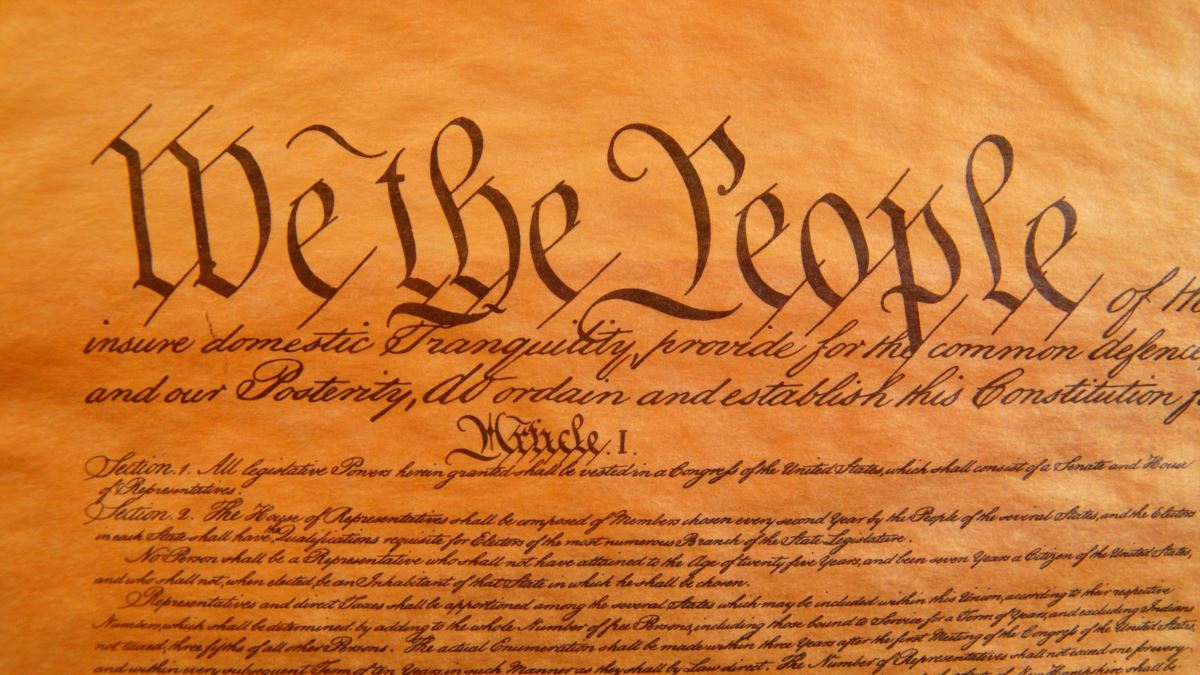 We the People of th
insure domestic Tranquility, provide for the common defence
and our Posterity, do ordain and establish this Constitution f
Article. I.
Section. 1. All legislative Powers herein granted shall be vested in a Congress of the United States, which shall consist of a Senate and House
of Representatives.
Section. 2. The House of Representatives shall be composed of Members chosen every second Year by the People of the several States, and the Electors
in each State shall have the Qualifications requisite for Electors of the most numerous Branch of the State Legislature.
No Person shall be a Representative who shall not have attained to the Age of twenty five Years, and been seven Years a Citizen of the United States,
and who shall not, when elected, be an Inhabitant of that State in which he shall be chosen.
Representatives and direct Taxes shall be apportioned among the several States which may be included within this Union, according to their respective
Numbers, which shall be determined by adding to the whole Number of free Persons, including those bound to Service for a Term of Years, and excluding Indians
not taxed, three fifths of all other Persons. The actual Enumeration shall be made within three Years after the first Meeting of the Congress of the United States,
and within every subsequent Term of ten Years, in such Manner as they shall by Law direct. The Number of Representatives shall not exceed one for every
State of New Hampshire shall be